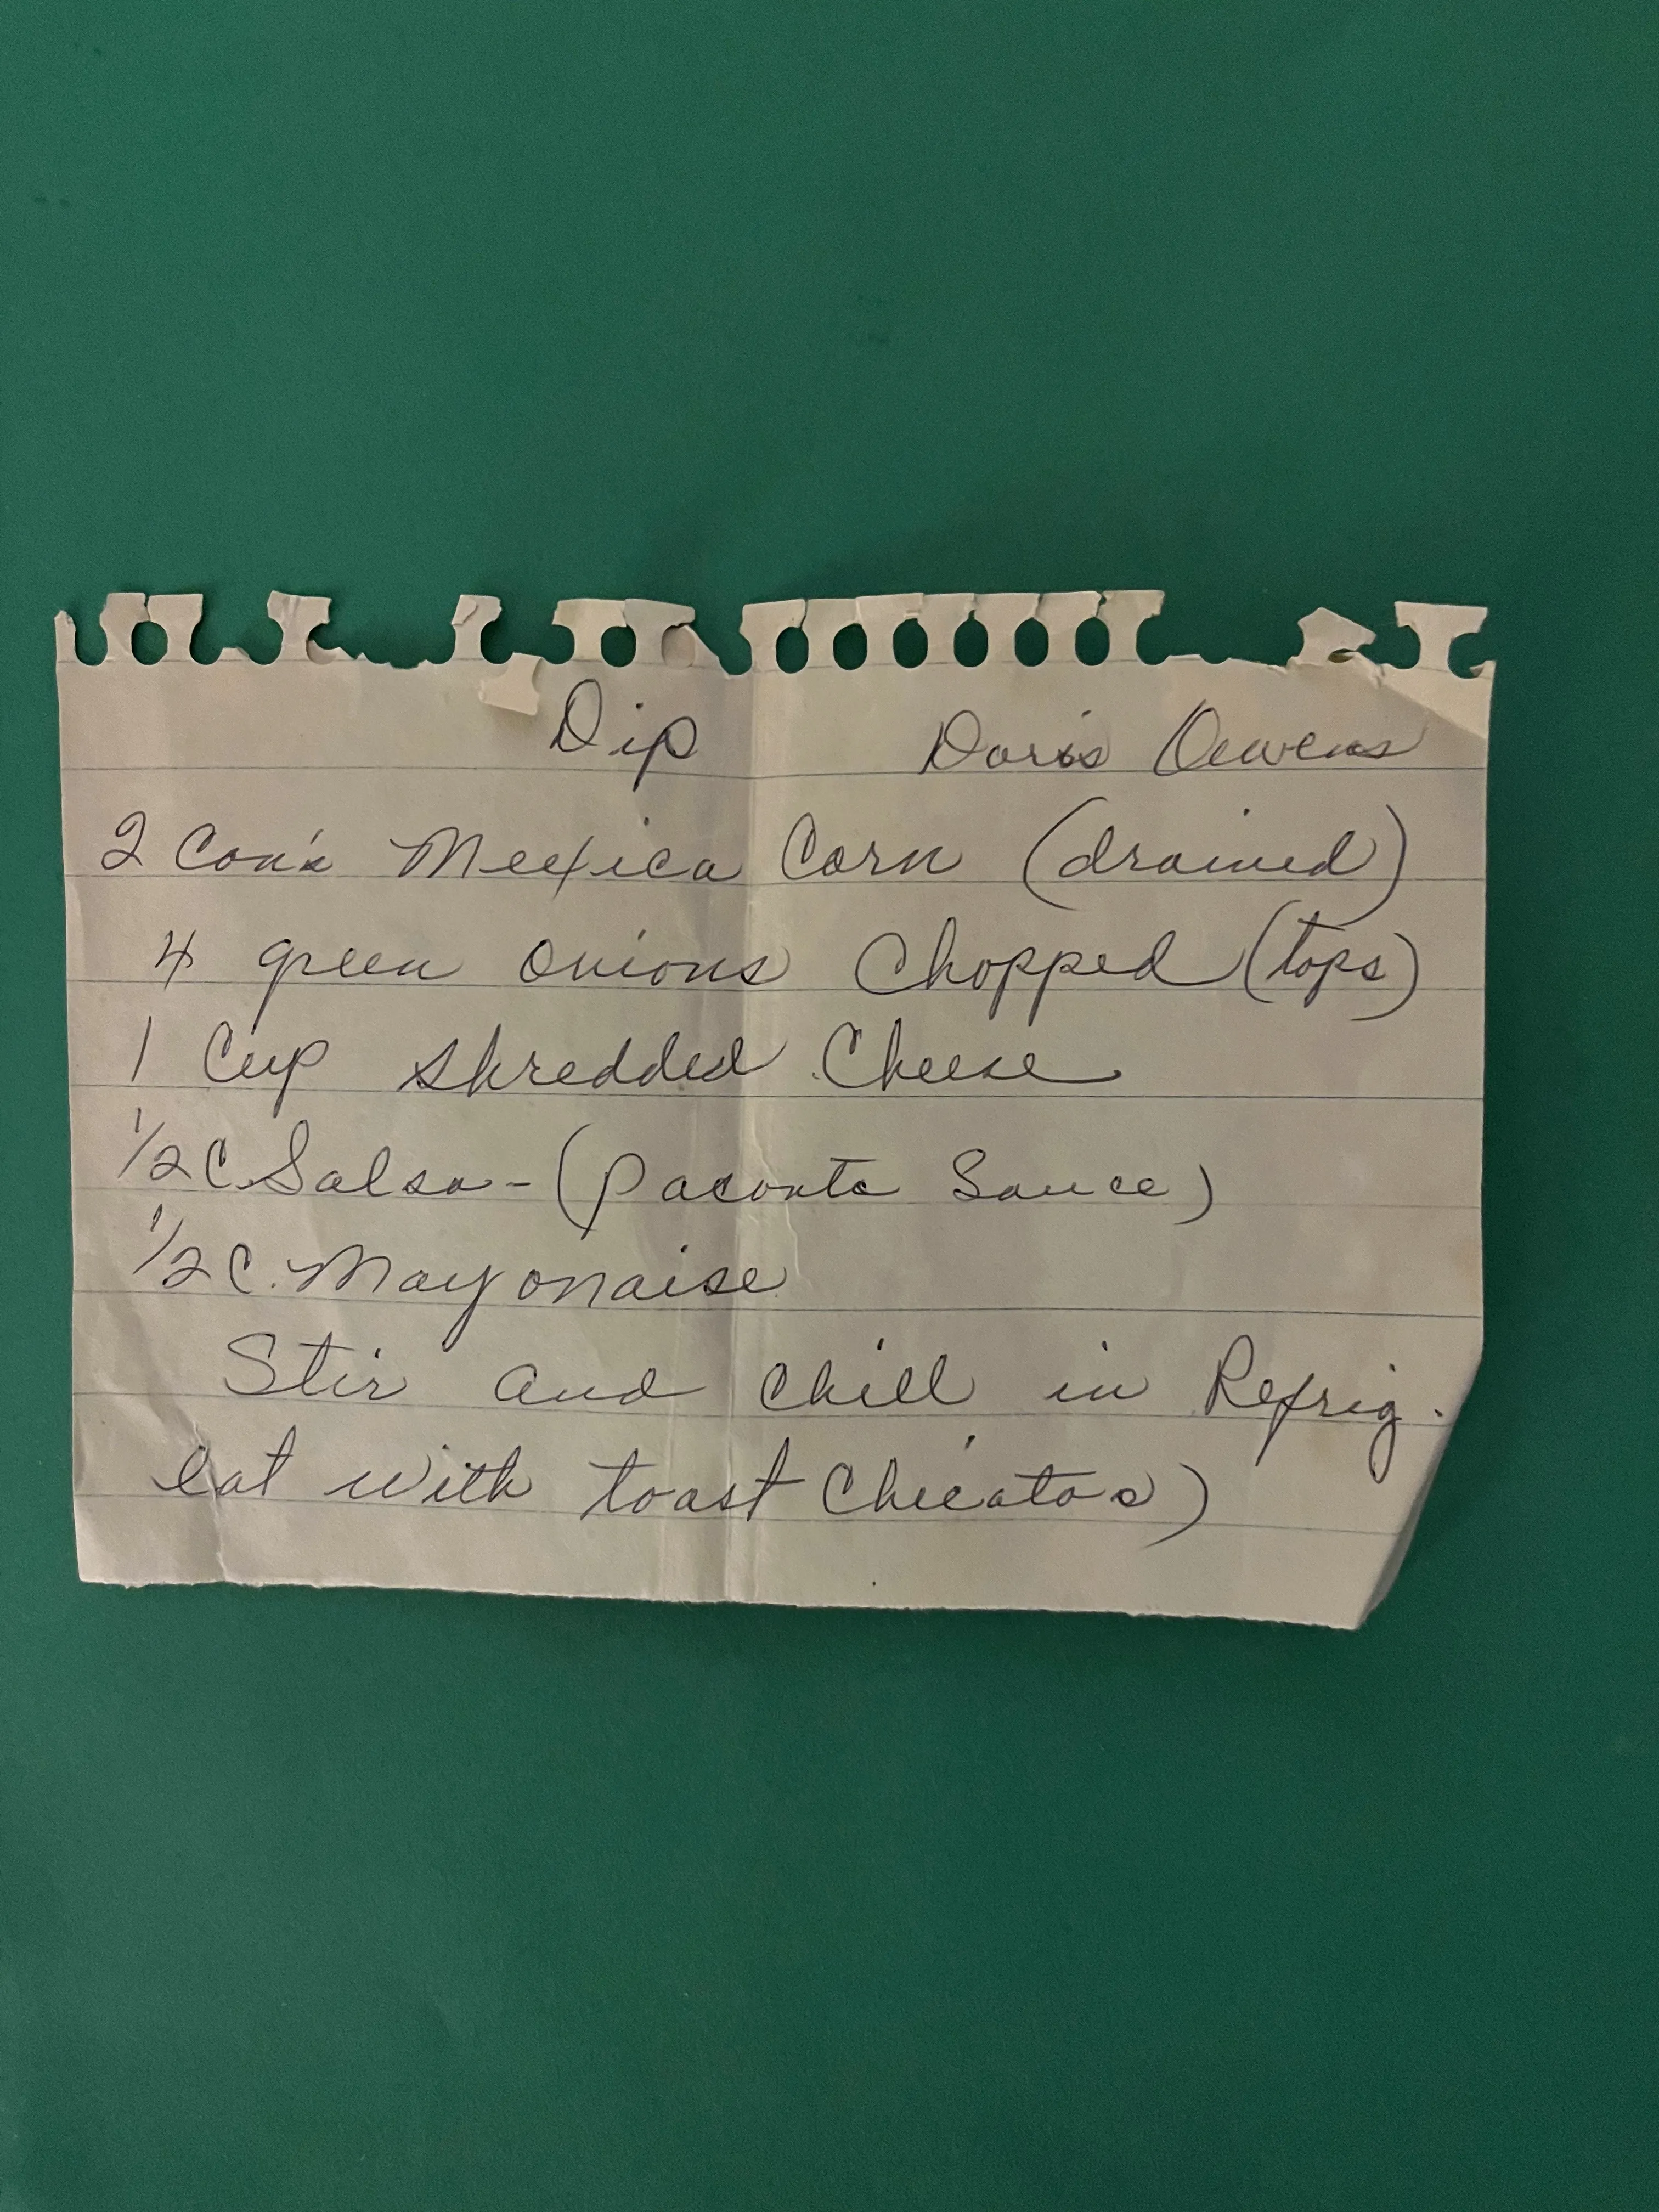 Dip Doris Oewens
2 Can's Mexica Corn (drained)
4 green onions Chopped (tops)
1 Cup shredded Cheese
1/2 C Salsa - (Paconte Sauce)
1/2 C. Mayonaise
Stir and chill in Refrig.
eat with toast Chieatos)